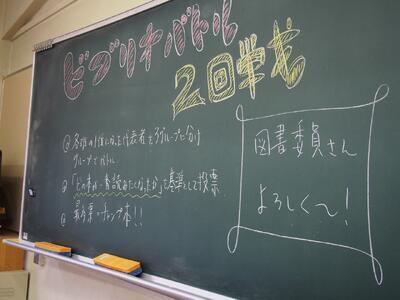 ビブリオバトル
2回戦む
① 各班の1位になった代表者を3グループに分け
グループでバトル。
② 「どの本が一番読みたくなったか」を基準として投票
③ 最多票→チャンプ本!!
図書委員さん
よろしく〜!